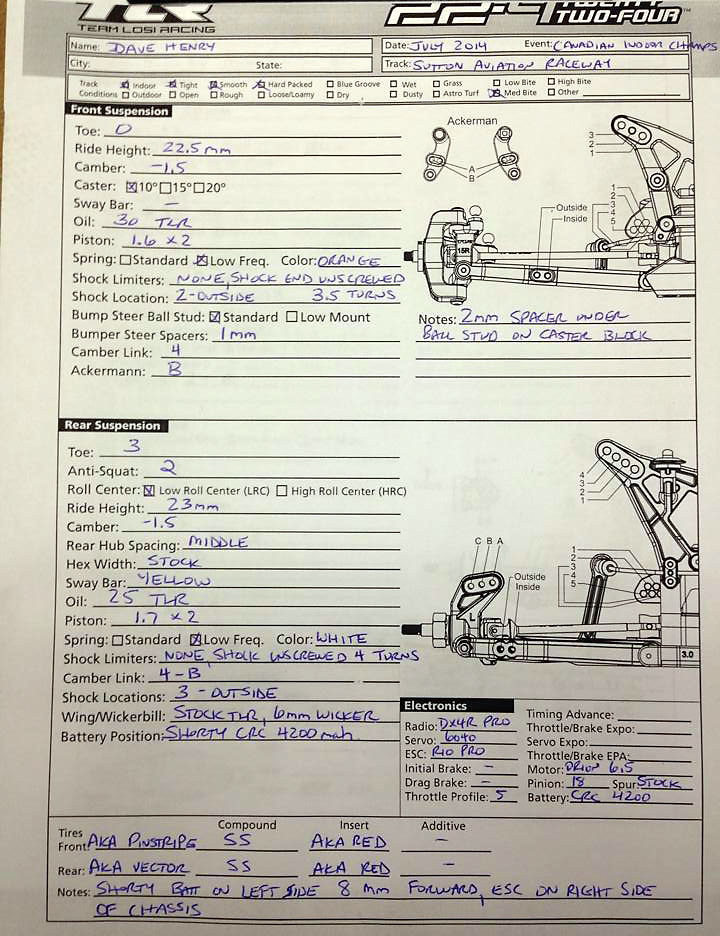 TLR
TEAM LOSI RACING
22-4 TWENTY TWO-FOUR™
Name: DAVE HENRY
Date: JULY 2014 Event: CANADIAN INDOOR CHAMPS
City: State:
Track: SUTTON AVIATION RACEWAY
Track Conditions ☒ Indoor ☒ Tight ☒ Smooth ☒ Hard Packed ☐ Blue Groove ☐ Wet ☐ Grass ☐ Low Bite ☐ High Bite
☐ Outdoor ☐ Open ☐ Rough ☐ Loose/Loamy ☐ Dry ☐ Dusty ☐ Astro Turf ☒ Med Bite ☐ Other
Front Suspension
Toe: 0
Ride Height: 22.5mm
Camber: -1.5
Caster: ☒ 10° ☐ 15° ☐ 20°
Sway Bar: -
Oil: 30 TLR
Piston: 1.6 x 2
Spring: ☐ Standard ☒ Low Freq. Color: ORANGE
Shock Limiters: NONE, SHOCK END UNSCREWED
Shock Location: 2-OUTSIDE 3.5 TURNS
Bump Steer Ball Stud: ☒ Standard ☐ Low Mount
Bumper Steer Spacers: 1mm
Camber Link: 4
Ackermann: B
Ackerman
A
B
3
2
1
Outside
Inside
1
2
3
4
5
15R
Notes: 2mm SPACER UNDER
BALL STUD ON CASTER BLOCK
Rear Suspension
Toe: 3
Anti-Squat: 2
Roll Center: ☒ Low Roll Center (LRC) ☐ High Roll Center (HRC)
Ride Height: 23mm
Camber: -1.5
Rear Hub Spacing: MIDDLE
Hex Width: STOCK
Sway Bar: YELLOW
Oil: 25 TLR
Piston: 1.7 x 2
Spring: ☐ Standard ☒ Low Freq. Color: WHITE
Shock Limiters: NONE, SHOCK UNSCREWED 4 TURNS
Camber Link: 4-B
Shock Locations: 3 - OUTSIDE
Wing/Wickerbill: STOCK TLR, 6mm WICKER
Battery Position: SHORTY CRC 4200 mah
4
3
2
1
C B A
Outside
Inside
1
2
3
4
5
L
3.0
Electronics
Radio: DX4R PRO
Servo: 6040
ESC: R10 PRO
Initial Brake: -
Drag Brake: -
Throttle Profile: 5
Timing Advance:
Throttle/Brake Expo:
Servo Expo:
Throttle/Brake EPA:
Motor: ORION 6.5
Pinion: 18 Spur: STOCK
Battery: CRC 4200
Tires Compound Insert Additive
Front: AKA PINSTRIPE SS AKA RED -
Rear: AKA VECTOR SS AKA RED -
Notes: SHORTY BATT ON LEFT SIDE 8 mm FORWARD, ESC ON RIGHT SIDE
OF CHASSIS